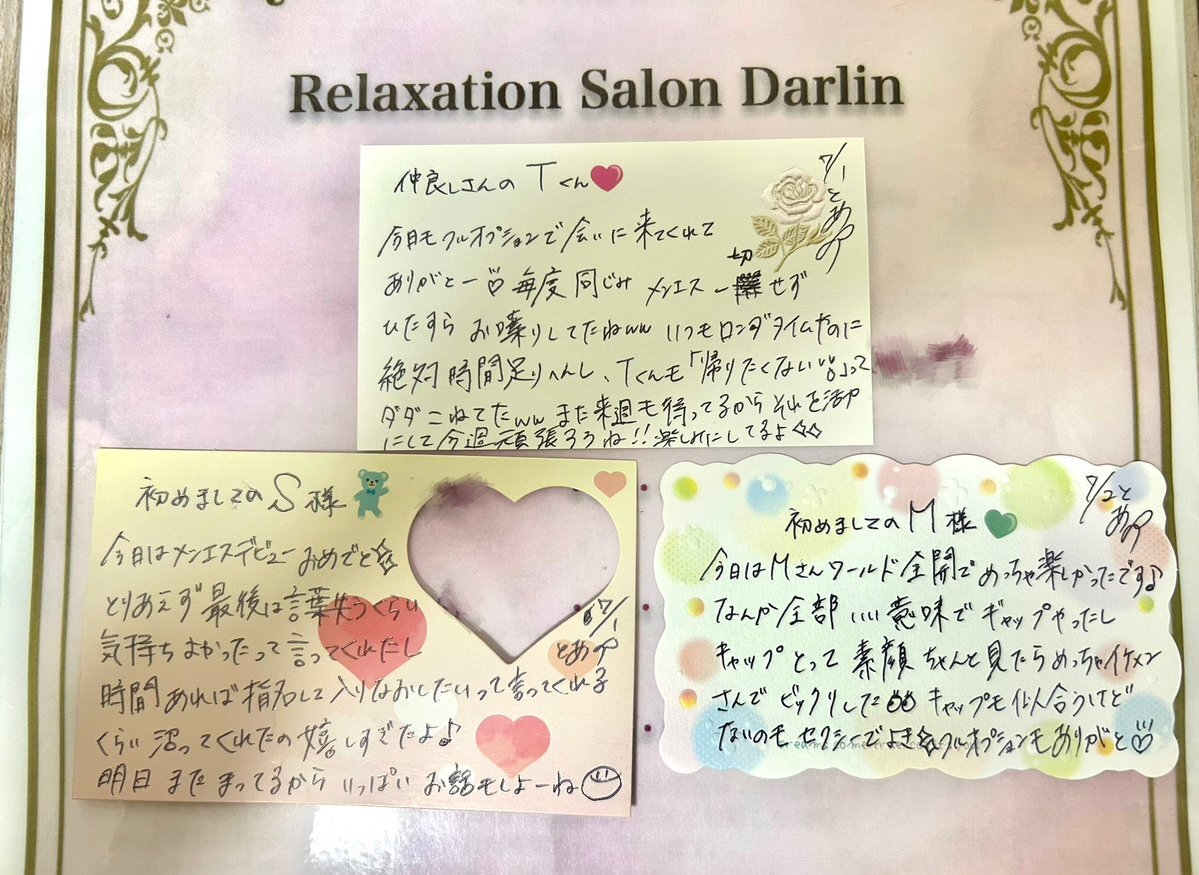 Relaxation Salon Darlin
仲良しさんの Tくん
7/1 とあ
今日もフルオプションで会いに来てくれて
ありがとー 毎度同じみ メンエス一切せず
ひたすら お喋りしてたねww いつもロングタイムなのに
絶対時間足りへんし、Tくんも「帰りたくない」って
ダダこねてたww また来週も待ってるから それを活力
にして今週頑張ろうね!!楽しみにしてるよ
初めましての S様
今日はメンエスデビュー おめでと☆
とりあえず最後は言葉失うくらい
気持ちよかったって言ってくれたし
7/1
とあ
時間あれば指名して入りなおしたいって言ってくれる
くらい沼ってくれたの嬉しすぎたよ♪
明日 また まってるから いっぱい お話もしよーね
7/2 とあ
初めましての M様
今日はMさんワールド全開でめっちゃ楽しかったです♪
なんか全部 いい意味で ギャップやったし
キャップとって 素顔 ちゃんと見たらめっちゃイケメン
さんで ビックリした キャップも似合うけど
ないのも セクシーでよき☆フルオプションもありがと